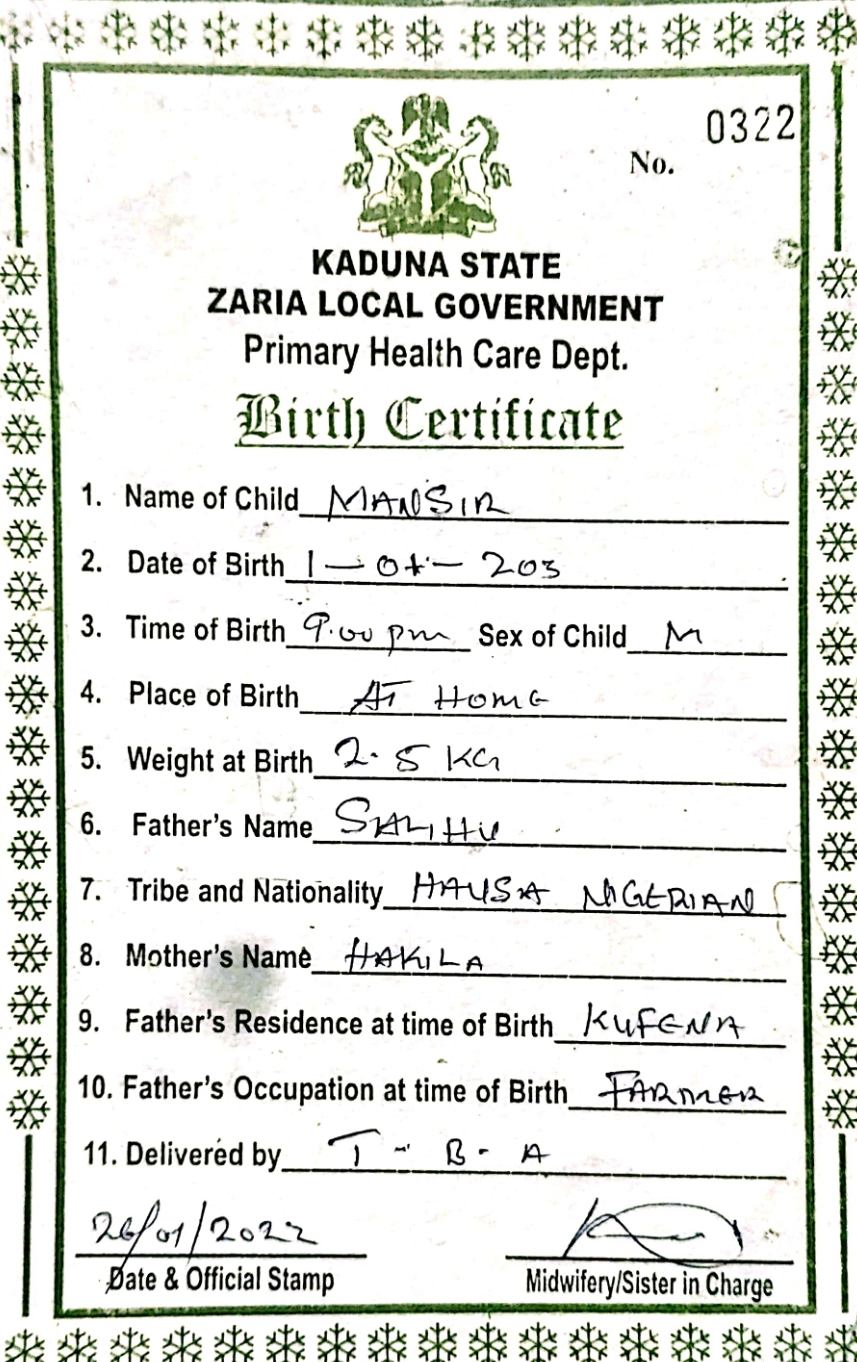 0322
No.
KADUNA STATE
ZARIA LOCAL GOVERNMENT
Primary Health Care Dept.
Birth Certificate
1. Name of Child MANSIR
2. Date of Birth 1 - 04 - 203
3. Time of Birth 9.00 pm Sex of Child M
4. Place of Birth AT HOME
5. Weight at Birth 2.5 KG
6. Father's Name SALIHU
7. Tribe and Nationality HAUSA NIGERIAN
8. Mother's Name HAKILA
9. Father's Residence at time of Birth KUFENA
10. Father's Occupation at time of Birth FARMER
11. Delivered by T - B - A
26/01/2022
Date & Official Stamp Midwifery/Sister in Charge